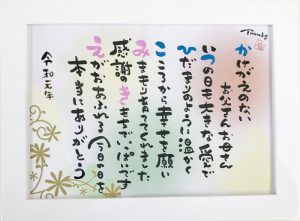 Thanks
かけがえのない
お父さんお母さん
いつの日も大きな愛で
ひだまりのように温かく
こころから幸せを願い
みまもり育ててくれました
感謝のきもちでいっぱいです
えがおあふれる今日の日を
本当にありがとう
令和元年